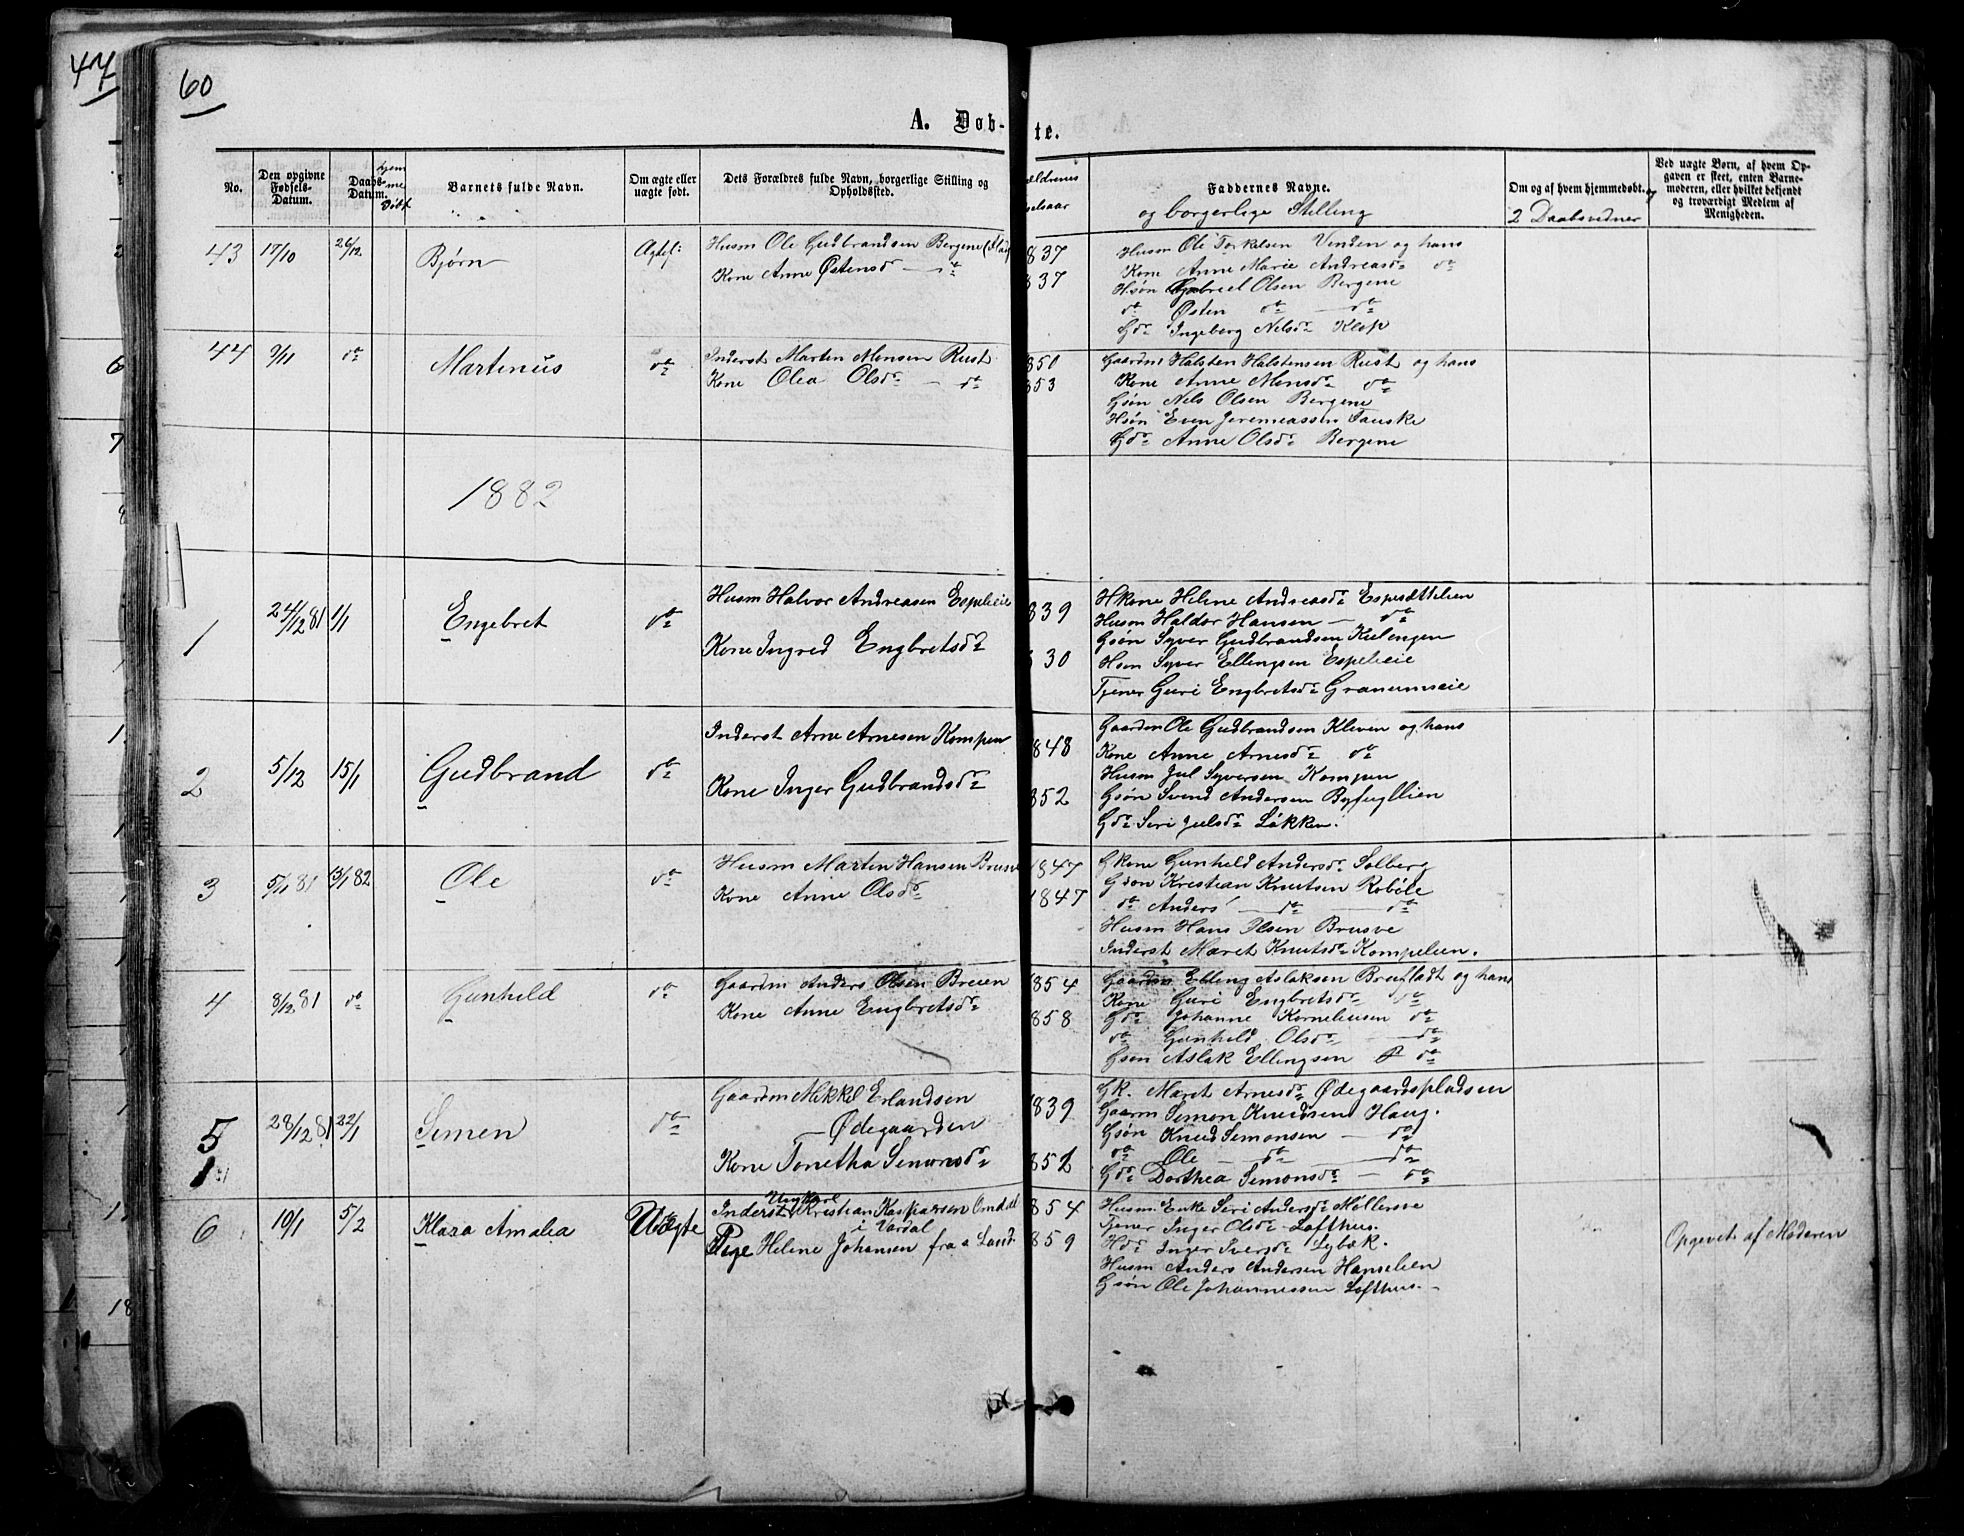 47
60
A. Døb-te.
No.
Den opgivne Fødsels-Datum.
Daabs-Datum.
hjemmedøbt
Barnets fulde Navn.
Om ægte eller uægte født.
Dets Forældres fulde Navn, borgerlige Stilling og Opholdssted.
Faddernes Navne.
og borgerlige Stilling
Om og af hvem hjemmedøbt.
2 Daabsvidner
Ved uægte Børn, af hvem Opgaven er skeet, enten Barnemoderen, eller hvilket bekjendt og troværdigt Medlem af Menigheden.
43 17/10 26/12 Bjørn Ægtef:
Husm Ole Gudbrandsen Bergene
Kone Anne Østensdr — do
837
837
Husm Ole Torkelsen Vinden og hans
Kone Anne Marie Andreasdr do
Hsøn Gabriel Olsen Bergene
do Østen do — do
Gdr Ingeborg Nelsdr Klop
44 9/11 do Martinus do
Inderst Marten Monsen Rust
Kone Olea Olsdr — do
850
853
Gaardm Halsten Halstensen Rust og hans
Kone Anne Monsdr do
Gsøn Nels Olsen Bergene
Hsøn Even Jeremeassen Fauske
Gdr Anne Olsdr Bergene
1882
1 24/12 81 1/1 Engebret do
Husm Halvor Andreasen Espelieie
Kone Ingred Engbretsdr
839
830
Hkone Helene Andreasdr Espesættelien
Husm Haldor Hansen — do
Gsøn Syver Gudbrandsen Kielengen
Hsøn Syver Ellingsen Espelieie
Tjener Guri Engbretsdr Granumseie
2 5/12 15/1 Gudbrand do
Inderst Arne Arnesen Kompen
Kone Inger Gudbrandsdr
848
852
Gaardm Ole Gudbrandsen Kleven og hans
Kone Anne Arnesdr do
Husm Jul Syversen Kompen
Gsøn Svend Andersen Byfugllien
Gdr Siri Julsdr Løkken.
3 5/1 81 15/1 82 Ole do
Husm Marten Hansen Brusve
Kone Anne Olsdr
1847
1847
Gkone Gunheld Andersdr Solberg
Gsøn Kristian Knutsen Robøle
do Anders — do — do
Husm Hans Olsen Brusve
Inderst Maret Knutsdr Kompelien.
4 8/12 81 do Gunheld do
Gaardm Anders Olsen Breien
Kone Anne Engbretsdr
1854
858
Gaardm Elling Aslaksen Brufladt og hans
Kone Guri Engbretsdr do
Gdr Johanne Korneliusen do
do Gunheld Olsdr — do
Gsøn Aslak Ellingsen do
5 28/12 81 22/1 Simen do
1
Gaardm Mikkel Erlandsen
— Ødegaarden
Kone Tonetha Simonsdr
1839
852
Gk. Maret Arnesdr Ødegaardspladsen
Gaarm Simon Knudsen Haug.
Gsøn Knud Simonsen — do
do Ole — do — do
Gdr Dorthea Simonsdr — do
6 10/1 5/2 Klara Amalia Uægte
Ungkarl
Inderst Kristian Kaspersen Omdal
i Vardal
Pige Helene Johansen fra Land
854
859
Husm Enke Siri Andersdr Møllersve
Tjener Inger Olsdr Lofthus.
Hdr Inger Iversdr Lybæk.
Husm Anders Andersen Hanselien
Gsøn Ole Johannessen Lofthus.
Opgivet af Moderen